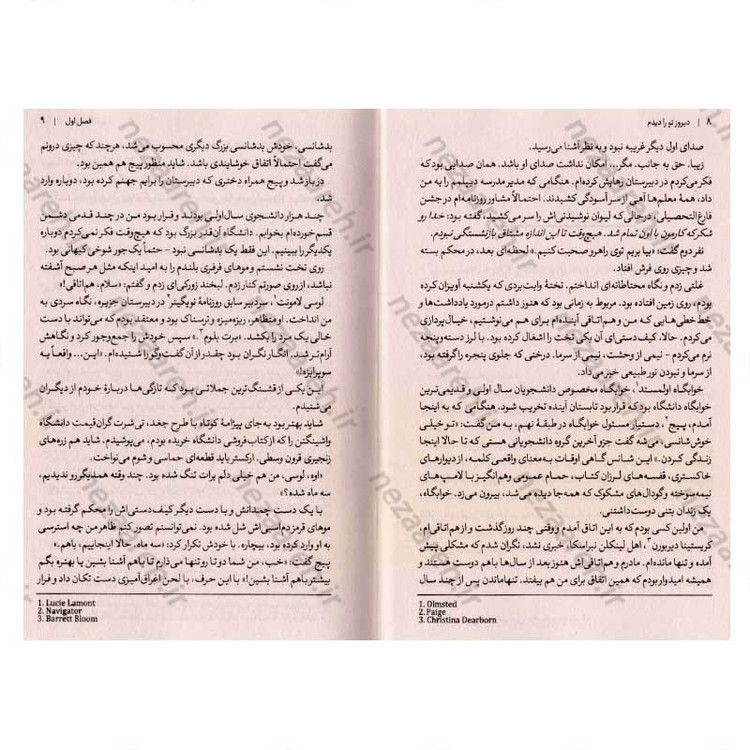 ۸ | دیروز تو را دیدم
صدای اول دیگر غریبه نبود و به نظر آشنا می‌رسید.
زیبا. حق به جانب. مگر... امکان نداشت صدای او باشد. همان صدایی بود که
فکر می‌کردم در دبیرستان رهایش کرده‌ام. هنگامی که مدیر مدرسه دیپلمم را به من
داد، همهٔ معلم‌ها آهی از سر آسودگی کشیدند. احتمالاً مشاور روزنامه‌ام در جشن
فارغ‌التحصیلی، درحالی‌که لیوان نوشیدنی‌اش را سر می‌کشید، گفته بود: خدا رو
شکر که کارمون با اون تمام شد. هیچ‌وقت تا این اندازه مشتاق بازنشستگی نبودم.
نفر دوم گفت: «بیا بریم توی راهرو صحبت کنیم.» لحظه‌ای بعد، در محکم بسته
شد و چیزی روی فرش افتاد.
غلتی زدم و نگاه محتاطانه‌ای انداختم. تختهٔ وایت‌بردی که یکشنبه آویزان کرده
بودم، روی زمین افتاده بود. مربوط به زمانی بود که هنوز داشتم درمورد یادداشت‌ها و
خط‌خطی‌هایی که من و هم‌اتاقی آینده‌ام برای هم می‌نوشتیم، خیال‌پردازی
می‌کردم. حالا، کیف‌دستی‌ای آن یکی تخت را اشغال کرده بود. با لرز دسته‌وپنجه
نرم می‌کردم - نیمی از وحشت، نیمی از سرما. درختی که جلوی پنجره را گرفته بود،
از سرما و نبودن نور طبیعی خبر می‌داد.
خوابگاه اولمستد۱، خوابگاه مخصوص دانشجویان سال اولی و قدیمی‌ترین
خوابگاه دانشگاه بود که قرار بود تابستان آینده تخریب شود. هنگامی که به اینجا
آمدم، پیج۲، دستیار مسئول خوابگاه در طبقهٔ نهم، به من گفت: «تو خیلی
خوش‌شانسی» می‌شه گفت جزو آخرین گروه دانشجویانی هستی که تا حالا اینجا
زندگی کردن.» این شانس گاهی اوقات به‌معنای واقعی کلمه، از دیوارهای
خاکستری، قفسه‌های لرزان کتاب، حمام عمومی وهم‌انگیز با لامپ‌های
نیمه‌سوخته و گودال‌های مشکوک که همه‌جا دیده می‌شد، بیرون می‌زد. خوابگاه،
یک زندان بتنی دوست داشتنی.
من اولین کسی بودم که به این اتاق آمدم و وقتی چند روز گذشت و از هم‌اتاقی‌ام،
کریستینا دیربورن۳، اهل لینکلن نبراسکا، خبری نشد، نگران شدم که مشکلی پیش
آمده و تنها مانده‌ام. مادرم و هم‌اتاقی‌اش هنوز بعد از سال‌ها باهم دوست هستند و
همیشه امیدوار بودم که همین اتفاق برای من هم بیفتد. تنها ماندن پس از چند سال
1. Olmsted
2. Paige
3. Christina Dearborn
فصل اول | ۹
بدشانسی، خودش بدشانسی بزرگ دیگری محسوب می‌شد، هرچند که چیزی درونم
می‌گفت احتمالاً اتفاق خوشایندی باشد. شاید منظور پیج هم همین بود.
در باز شد و پیج همراه دختری که دبیرستان را برایم جهنم کرده بود، دوباره وارد
شد.
چند هزار دانشجوی سال اولی بودند و قرار بود من در چند قدمی دشمن
قسم‌خورده‌ام بخوابم. دانشگاه آن‌قدر بزرگ بود که هیچ‌وقت فکر نمی‌کردم دوباره
یکدیگر را ببینیم. این فقط یک بدشانسی نبود - حتماً یک‌جور شوخی کیهانی بود.
روی تخت نشستم و موهای فرفری بلندم را به امید اینکه مثل هر صبح آشفته
نباشد، از روی صورتم کنار زدم. لبخند زورکی‌ای زدم و گفتم: «سلام، هم‌اتاقی!»
لوسی لامونت۱، سردبیر سابق روزنامهٔ نویگیتر۲ در دبیرستان جزیره، نگاه سردی به
من انداخت. او متظاهر، ریزه‌میزه و ترسناک بود و معتقد بودم که می‌تواند با دست
خالی یک مرد را بکشد. «برت بلوم۳.» سپس خودش را جمع‌وجور کرد و نگاهش
آرام‌تر شد. انگار نگران بود چقدر از آن گفت‌وگو را شنیده‌ام. «این... واقعاً یه
سوپرایزه!»
این یکی از قشنگ‌ترین جملاتی بود که تازگی‌ها دربارهٔ خودم از دیگران
می‌شنیدم.
شاید بهتر بود به جای پیژامهٔ کوتاه با طرح جغد، تی‌شرت گران‌قیمت دانشگاه
واشینگتن را که از کتاب‌فروشی دانشگاه خریده بودم، می‌پوشیدم. شاید هم زره‌های
زنجیری قرون وسطی. ارکستر باید قطعه‌ای حماسی و شوم می‌نواخت.
«اوه، لوسی، من هم خیلی دلم برات تنگ شده بود. چند وقته همدیگه رو ندیدیم،
سه ماه شده؟»
با یک دست چمدانش و با دست دیگر کیف‌دستی‌اش را محکم گرفته بود و
موهای قرمز دم‌اسبی‌اش شل شده بود. نمی‌توانستم تصور کنم ظاهر من چه استرسی
به او وارد کرده بود، بیچاره. با خودش تکرار کرد: «سه ماه. حالا اینجاییم، باهم.»
پیج گفت: «خب، من شما دو تا رو تنها می‌ذارم تا باهم آشنا بشین یا بهتره بگم
بیشتر باهم آشنا بشین!» با این حرف، با لحن اغراق‌آمیزی دست تکان داد و فرار
1. Lucie Lamont
2. Navigator
3. Barrett Bloom
nezaareh.ir